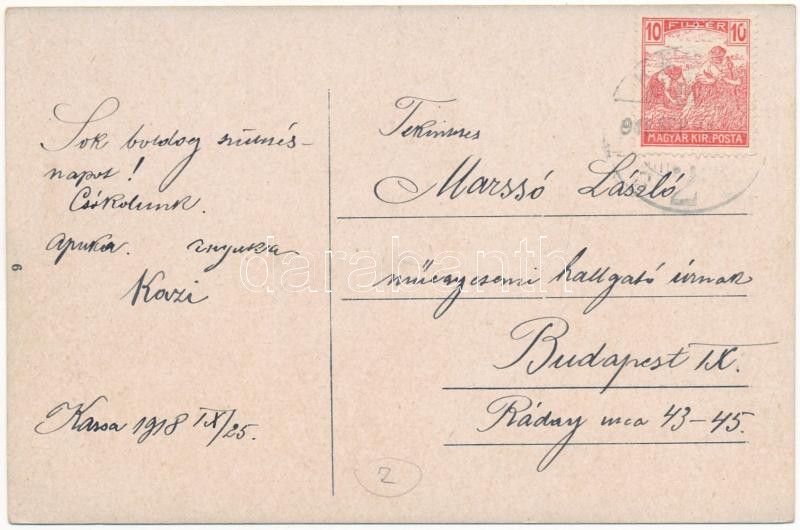 10 FILLÉR 10
MAGYAR KIR. POSTA
Sok boldog születés-
napot!
Csókolunk.
apuka. anyuka
Kozi
Kassa 1918 IX/25.
Tekintetes
Marssó László
műegyetemi hallgató úrnak
Budapest IX.
Ráday utca 43-45.
2
9
darabanth